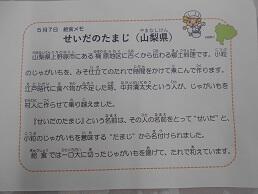 ５月７日　給食メモ
せいだのたまじ（山梨県）
山梨県上野原市にある棡原地区に古くから伝わる郷土料理です。小粒
のじゃがいもを、みそ仕立てのたれで時間をかけて煮こんで作ります。
江戸時代に食べ物が不足した時、中井清太夫という人が、じゃがいもを
村人に作らせて乗り越えました。
『せいだのたまじ』という名前は、その人の名前をとって“せいだ”と、
小粒のじゃがいもを意味する“たまじ”から名付けられました。
給食では一口大に切ったじゃがいもを揚げて、たれで和えています。